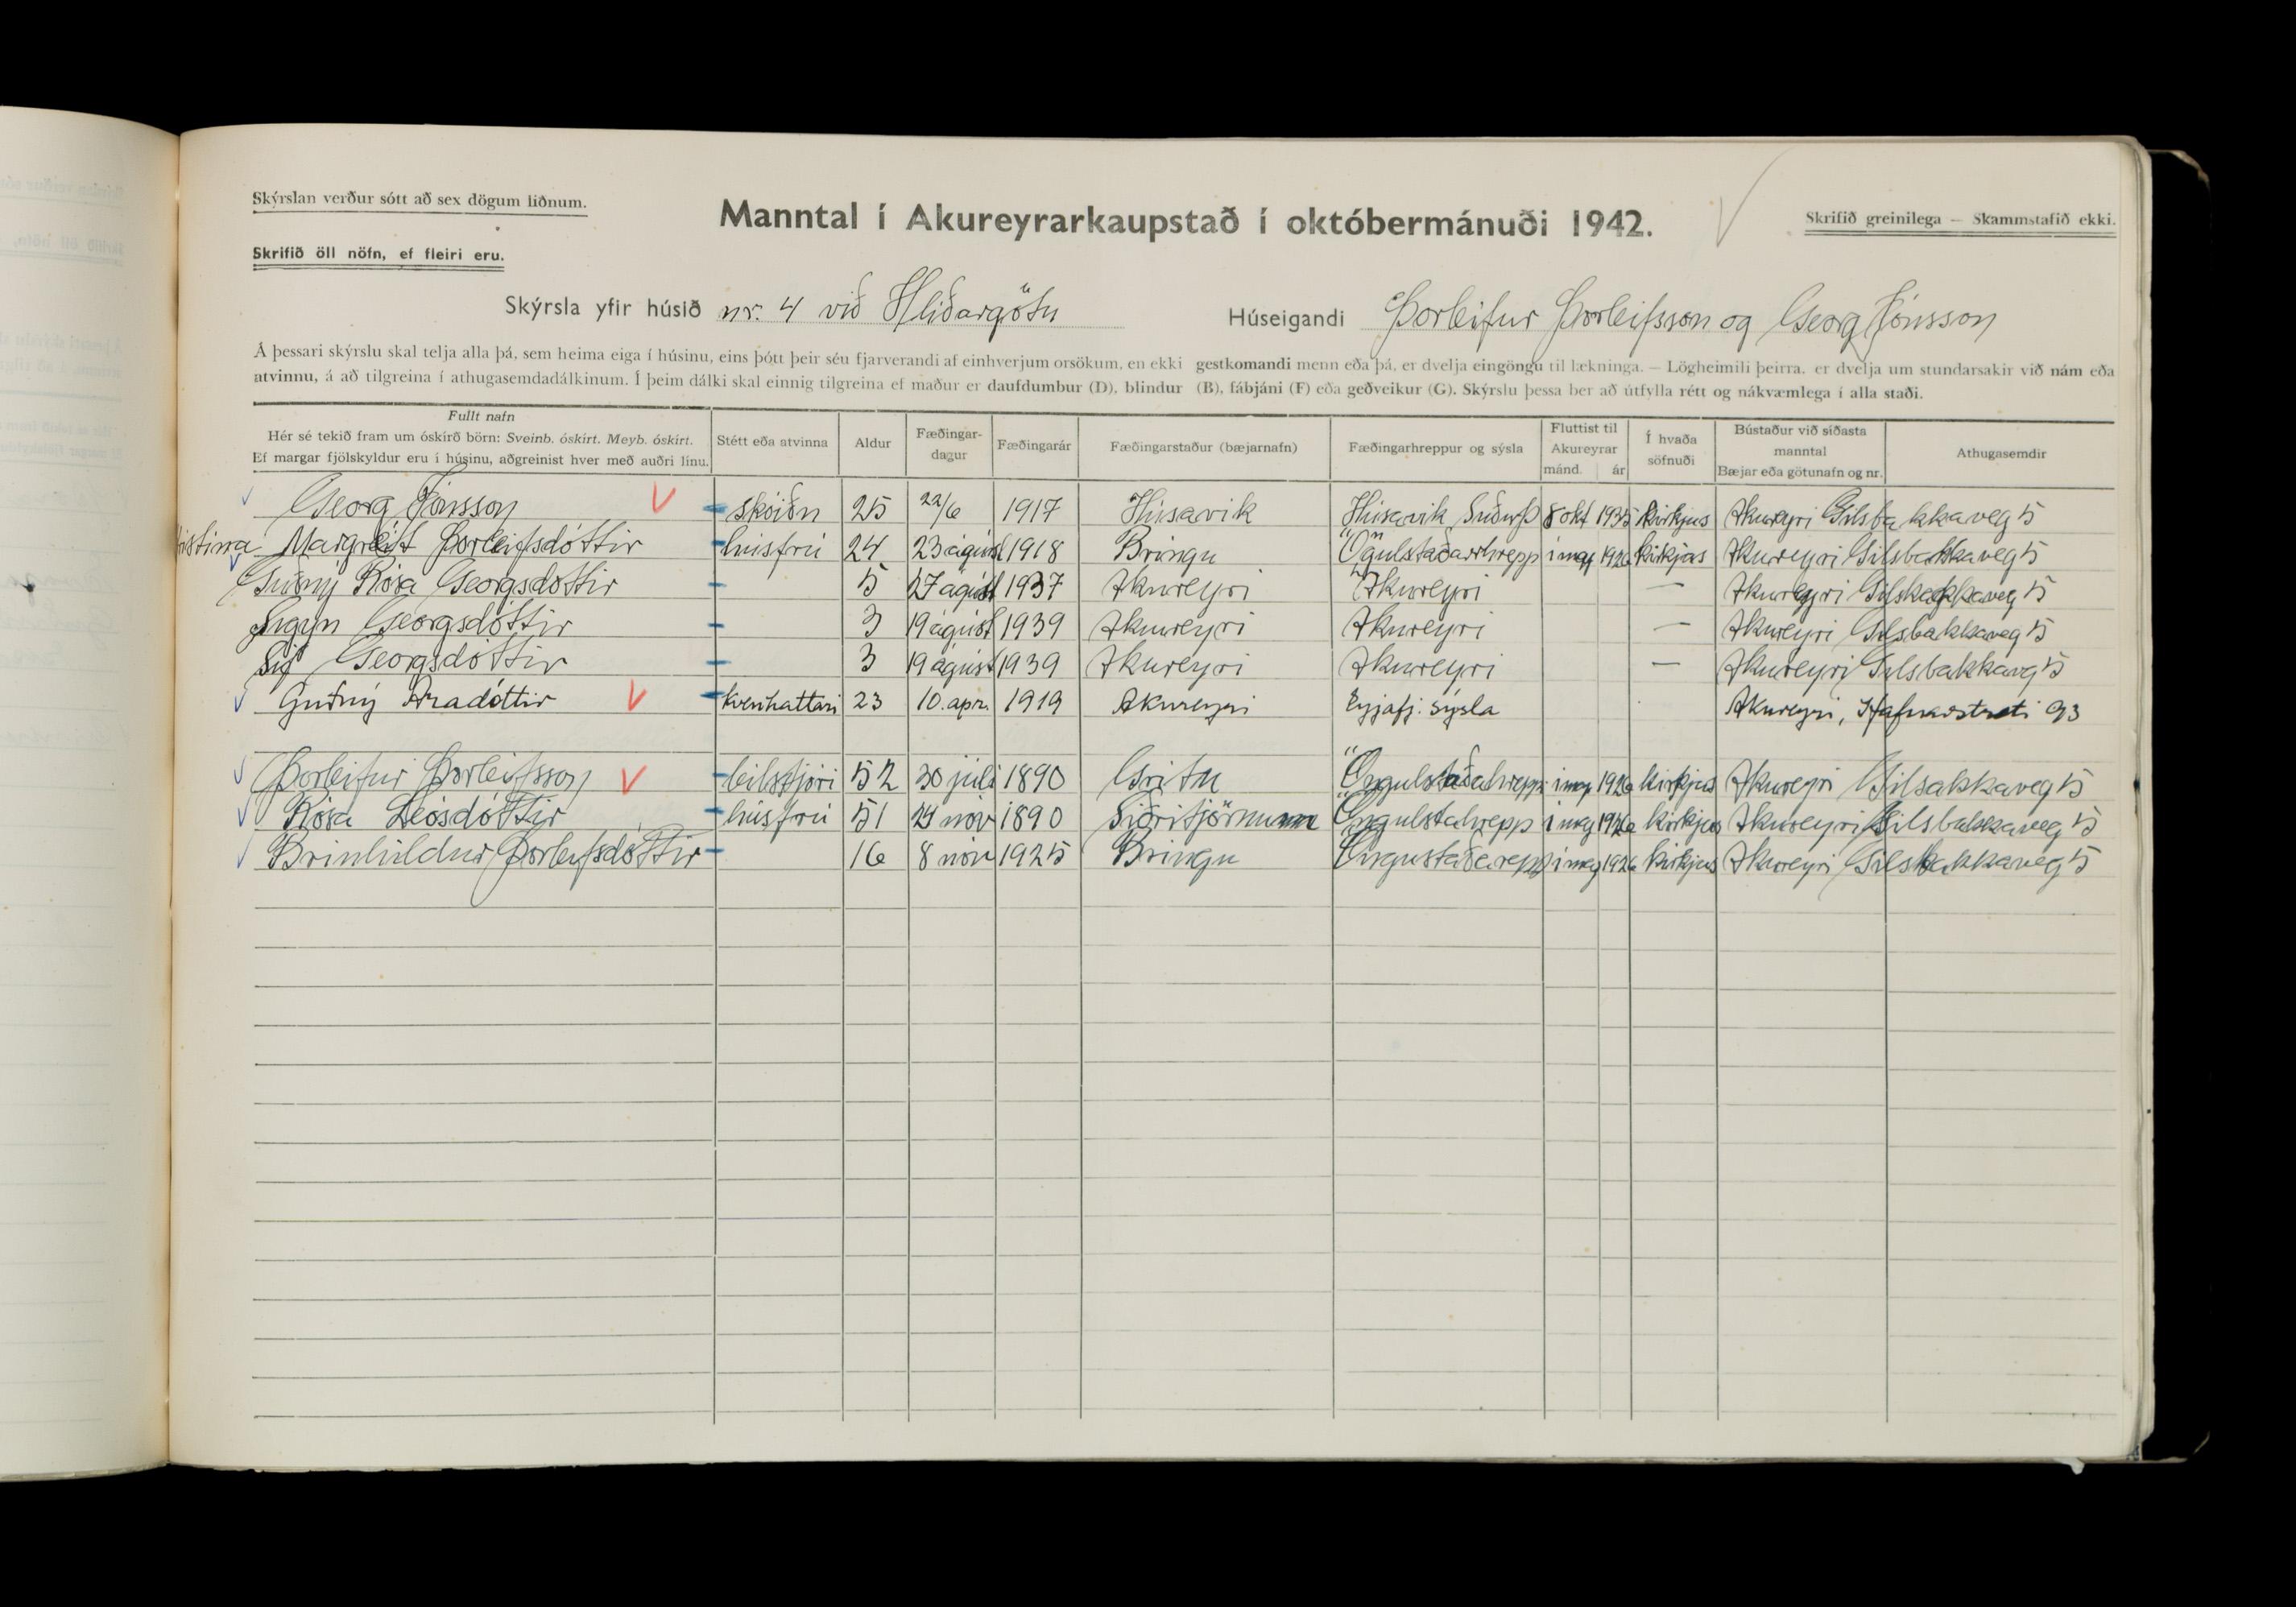 Skýrslan verður sótt að sex dögum liðnum.
Skrifið öll nöfn, ef fleiri eru.
Manntal í Akureyrarkaupstað í októbermánuði 1942.
Skrifið greinilega — Skammstafið ekki.
Skýrsla yfir húsið nr. 4 við Hlíðargötu Húseigandi Þorleifur Þorleifsson og Georg Jónsson
Á þessari skýrslu skal telja alla þá, sem heima eiga í húsinu, eins þótt þeir séu fjarverandi af einhverjum orsökum, en ekki gestkomandi menn eða þá, er dvelja eingöngu til lækninga. — Lögheimili þeirra, er dvelja um stundarsakir við nám eða
atvinnu, á að tilgreina í athugasemdadálkinum. Í þeim dálki skal einnig tilgreina ef maður er daufdumbur (D), blindur (B), fábjáni (F) eða geðveikur (G). Skýrslu þessa ber að útfylla rétt og nákvæmlega í alla staði.
Fullt nafn
Hér sé tekið fram um óskírð börn: Sveinb. óskírt. Meyb. óskírt.
Ef margar fjölskyldur eru í húsinu, aðgreinist hver með auðri línu.
Stétt eða atvinna
Aldur
Fæðingar-
dagur
Fæðingarár
Fæðingarstaður (bæjarnafn)
Fæðingarhreppur og sýsla
Fluttist til
Akureyrar
mánd. ár
Í hvaða
söfnuði
Bústaður við síðasta
manntal
Bæjar eða götunafn og nr.
Athugasemdir
Georg Jónsson skóiðn 25 22/6 1917 Húsavik Húsavik Suðurþ 8 okt 1935 kirkjus Akureyri Gilsbakkaveg 5
Margrét Þorleifsdóttir húsfrú 24 23 ágúst 1918 Bringu Ögulstaðarhrepp í may 1926 kirkjus Akureyri Gilsbakkaveg 5
Guðný Rósa Georgsdóttir 5 27 ágúst 1937 Akureyri Akureyri — Akureyri Gilsbakkaveg 5
Sigyn Georgsdóttir 3 19 ágúst 1939 Akureyri Akureyri — Akureyri Gilsbakkaveg 5
Sif Georgsdóttir 3 19 ágúst 1939 Akureyri Akureyri — Akureyri Gilsbakkavg 5
Guðný Aradóttir kvenhattari 23 10. apr. 1919 Akureyri Eyjafj. sýsla Akureyri, Hafnarstræti 93
Þorleifur Þorleifsson bilstjóri 52 30 júli 1890 Grítu Öngulstaðahrepp í may 1926 kirkjus Akureyri Gilsakkaveg 5
Rósa Leósdóttir húsfrú 51 24 nóv 1890 Öngulstahrepp í may 1926 kirkjus Akureyri Gilsbakkaveg 5
Brinhildur Þorleifsdóttir 16 8 nóv 1925 Bringu Öngustaðarepp í may 1926 kirkjus Akureyri Gilsbakkaveg 5